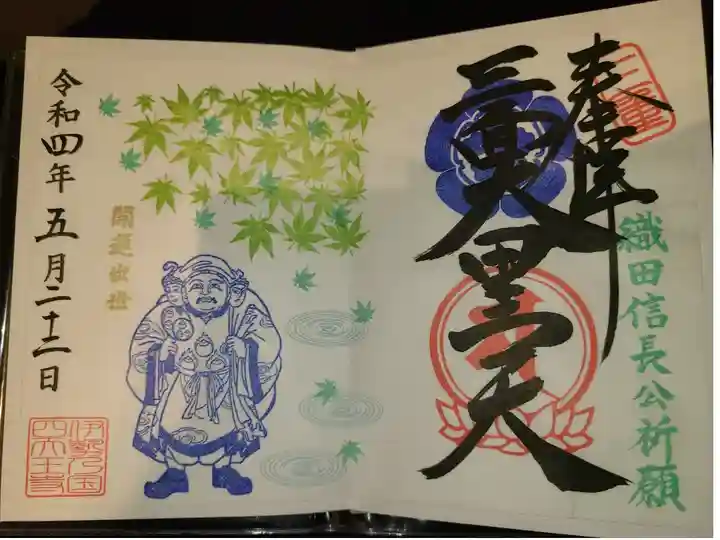 三重
奉拝
織田信長公祈願
三面大黒天
開運出世
令和四年五月二十二日
伊勢乃国
四天王寺